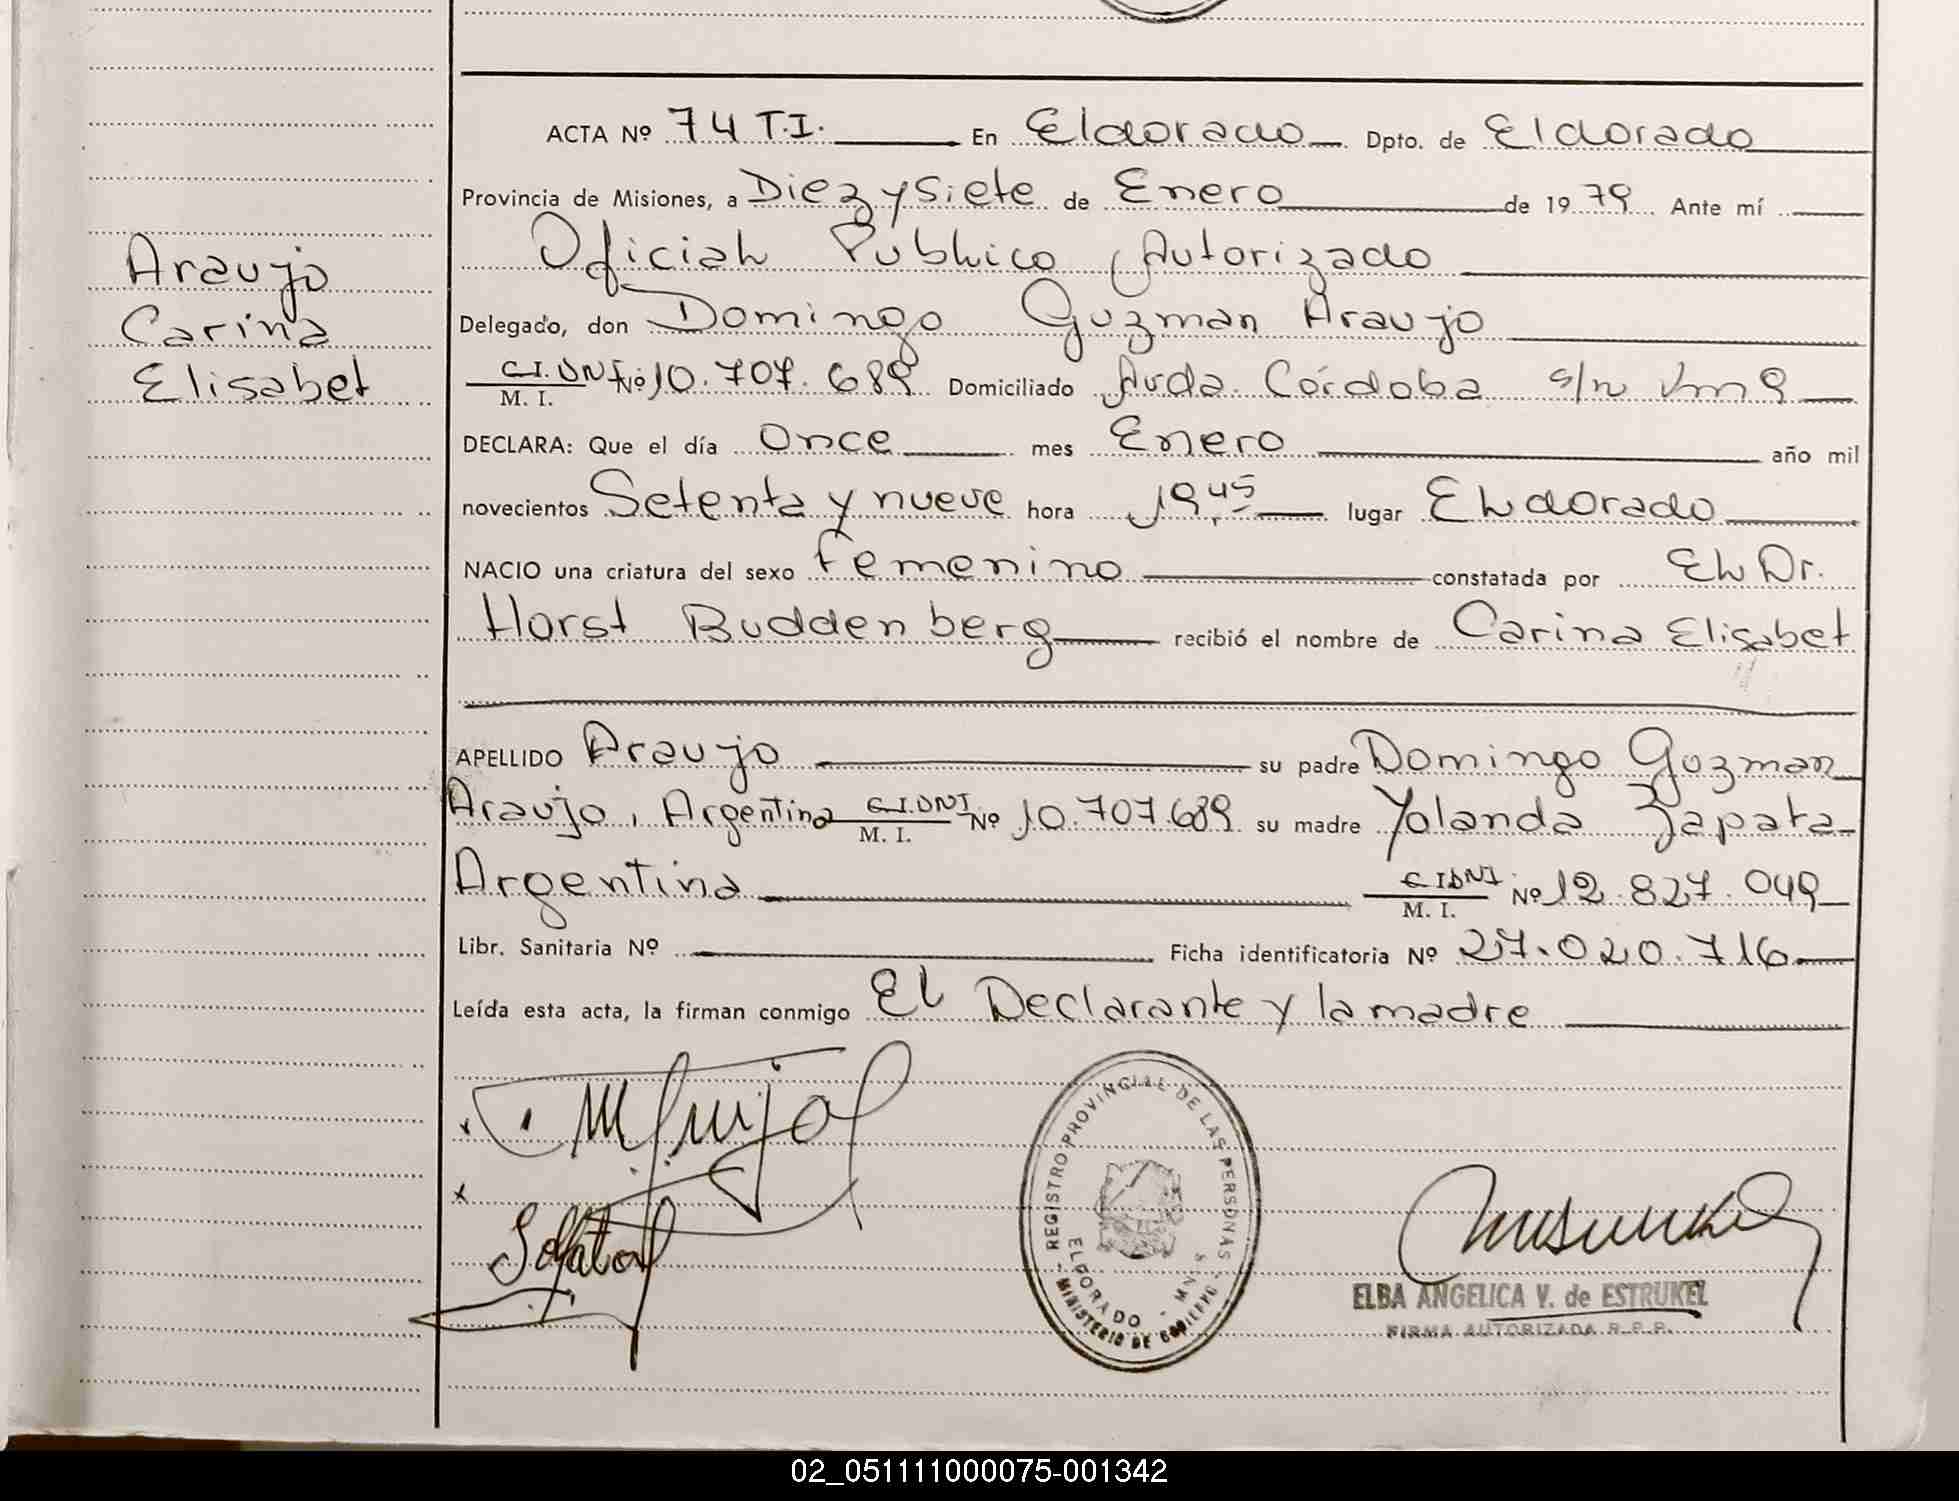 ACTA Nº 74 T.I. En Eldorado Dpto. de Eldorado
Provincia de Misiones, a Diez y Siete de Enero de 1979 Ante mí
Oficial Público Autorizado
Araujo
Delegado, don Domingo Guzman Araujo
Carina
C.I. DNI Nº 10.707.689 Domiciliado Avda. Córdoba s/n
M. I.
Elisabet
DECLARA: Que el día Once mes Enero año mil
novecientos Setenta y nueve hora 19 45 lugar Eldorado
NACIO una criatura del sexo femenino constatada por El Dr.
Horst Buddenberg recibió el nombre de Carina Elisabet
APELLIDO Araujo su padre Domingo Guzman
Araujo, Argentino C.I. DNI Nº 10.707.689 su madre Yolanda Zapata
M. I.
Argentina C.I DNI Nº 12.827.049
M. I.
Libr. Sanitaria Nº Ficha identificatoria Nº 27.020.716
Leída esta acta, la firman conmigo El Declarante y la madre
REGISTRO PROVINCIAL DE LAS PERSONAS
ELDORADO - MNS
MINISTERIO DE GOBIERNO
ELBA ANGELICA V. de ESTRUKEL
FIRMA AUTORIZADA R.P.P.
02_051111000075-001342